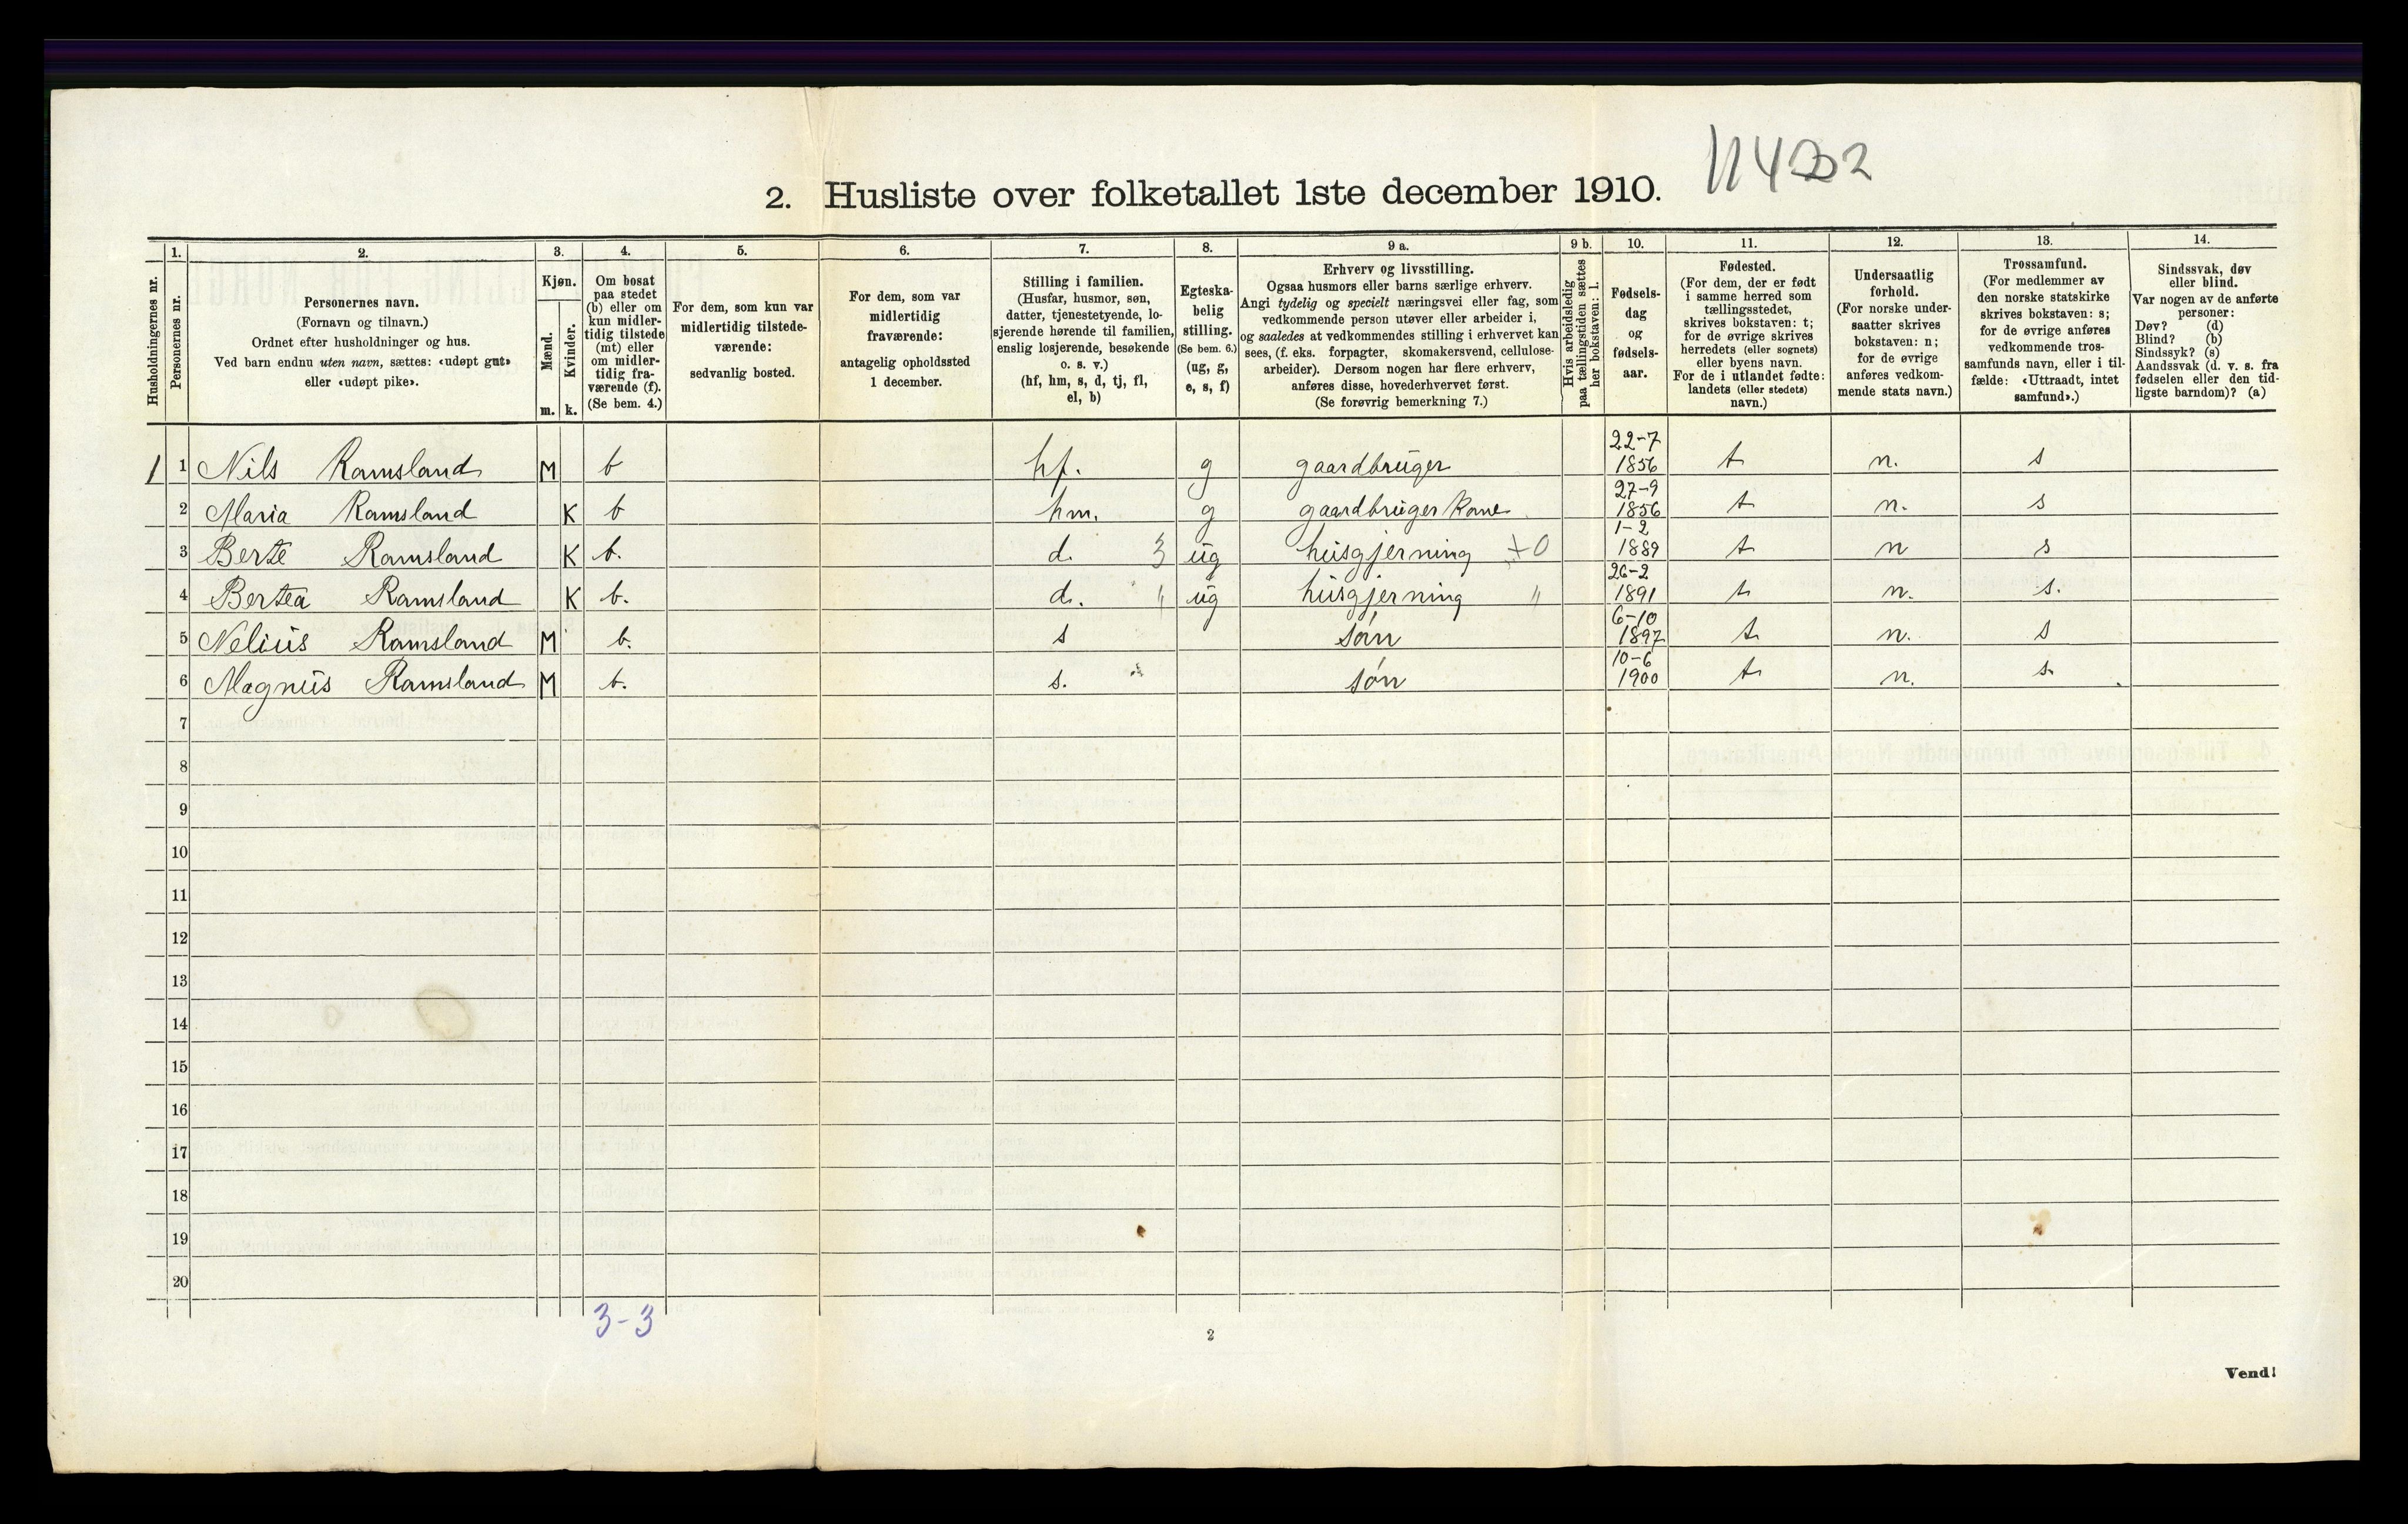 2. Husliste over folketallet 1ste december 1910.
Husholdningernes nr.
1.
Personernes nr.
2.
Personernes navn.
(Fornavn og tilnavn.)
Ordnet efter husholdninger og hus.
Ved barn endnu uten navn, sættes: «udøpt gut»
eller «udøpt pike».
3.
Kjøn.
Mænd.
Kvinder.
m. k.
4.
Om bosat
paa stedet
(b) eller om
kun midler-
tidig tilstede
(mt) eller
om midler-
tidig fra-
værende (f).
(Se bem. 4.)
5.
For dem, som kun var
midlertidig tilstede-
værende:
sedvanlig bosted.
6.
For dem, som var
midlertidig
fraværende:
antagelig opholdssted
1 december.
7.
Stilling i familien.
(Husfar, husmor, søn,
datter, tjenestetyende, lo-
sjerende hørende til familien,
enslig losjerende, besøkende
o. s. v.)
(hf, hm, s, d, tj, fl,
el, b)
8.
Egteska-
belig
stilling.
(Se bem. 6.)
(ug, g,
e, s, f)
9 a.
Erhverv og livsstilling.
Ogsaa husmors eller barns særlige erhverv.
Angi tydelig og specielt næringsvei eller fag, som
vedkommende person utøver eller arbeider i,
og saaledes at vedkommendes stilling i erhvervet kan
sees, (f. eks. forpagter, skomakersvend, cellulose-
arbeider). Dersom nogen har flere erhverv,
anføres disse, hovederhvervet først.
(Se forøvrig bemerkning 7.)
9 b.
Hvis arbeidsledig
paa tællingstiden sættes
her bokstaven: l.
10.
Fødsels-
dag
og
fødsels-
aar.
11.
Fødested.
(For dem, der er født
i samme herred som
tællingsstedet,
skrives bokstaven: t;
for de øvrige skrives
herredets (eller sognets)
eller byens navn.
For de i utlandet fødte:
landets (eller stedets)
navn.)
12.
Undersaatlig
forhold.
(For norske under-
saatter skrives
bokstaven: n;
for de øvrige
anføres vedkom-
mende stats navn.)
13.
Trossamfund.
(For medlemmer av
den norske statskirke
skrives bokstaven: s;
for de øvrige anføres
vedkommende tros-
samfunds navn, eller i til-
fælde: «Uttraadt, intet
samfund».)
14.
Sindssvak, døv
eller blind.
Var nogen av de anførte
personer:
Døv? (d)
Blind? (b)
Sindssyk? (s)
Aandssvak (d. v. s. fra
fødselen eller den tid-
ligste barndom)? (a)
1 1 Nils Ramsland M b hf. g gaardbruger 22-7 1856 t n. s
2 Maria Ramsland K b hm. g gaardbruger kone 27-9 1856 t n. s
3 Berte Ramsland K b. d. 3 ug husgjerning 0 1-2 1889 t n s
4 Bertea Ramsland K b. d. " ug husgjerning " 26-2 1891 t n. s.
5 Nelius Ramsland M b. s søn 6-10 1897 t n. s
6 Magnus Ramsland M b. s. søn 10-6 1900 t n. s.
7
8
9
10
11
12
13
14
15
16
17
18
19
20
3-3
2
Vend!